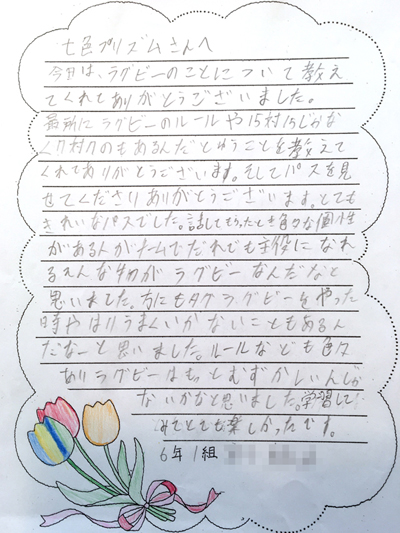 七色プリズムさんへ
今日は、ラグビーのことについて教え
てくれてありがとうございました。
最所にラグビーのルールや15対15じゃな
く7対7のもあるんだとゆうことを教えて
くれてありがとうございます。そしてパスを見
せてくださりありがとうございます。とても
きれいなパスでした。話してもらったとき色々な個性
があるんがチームでだれでも主役になれ
るそんな物がラグビーなんだなと
思いました。方にもタグラグビーをやった
時やはりうまくいがないこともあるん
だなーと思いました。ルールなども色々
ありラグビーはもっとむずかしいんじゃ
ないかなと思いました。学習して
みてとても楽しかったです。
6年1組